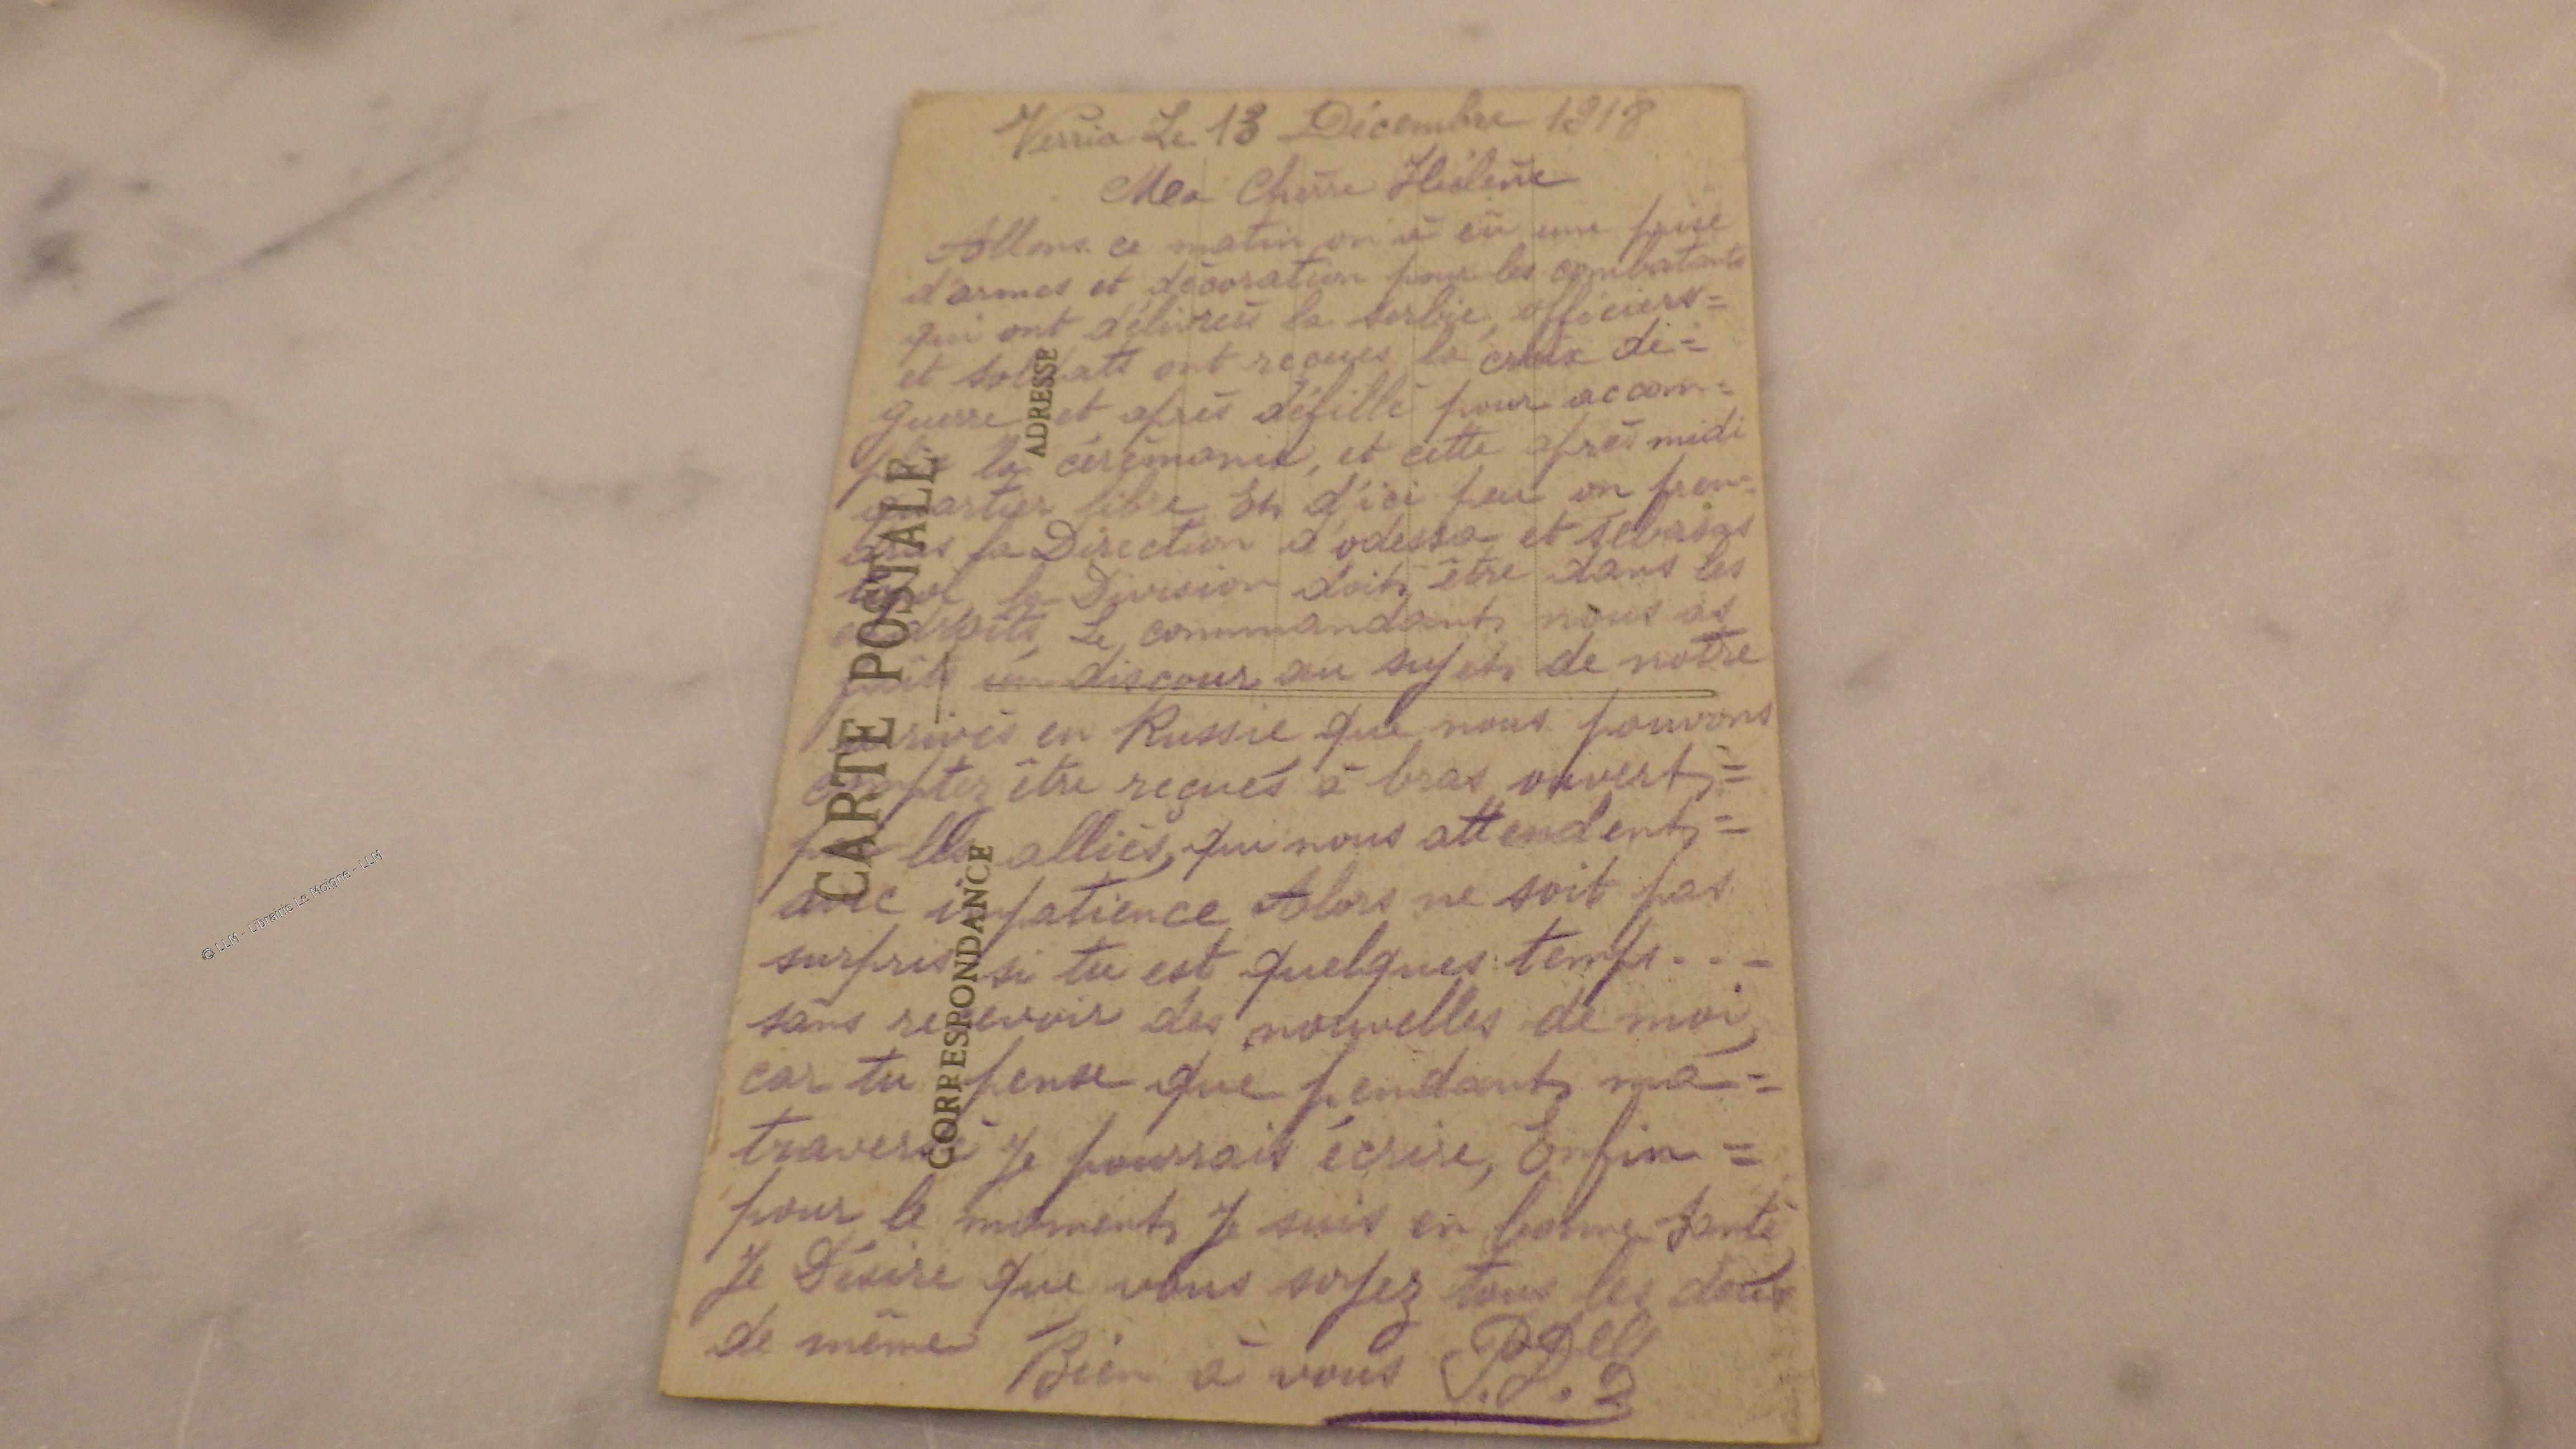 Verria Le 13 Décembre 1918
Ma Cherre Hélène
Allons ce matin on à eû une prise
d'armes et décoration pour les combatants
qui ont délivrées la serbie, officiers=
et soldats ont reçues la croix de=
guerre et après défillé pour accom=
plir la cérémonie, et cette après midi
quartier libre Et d'ici peu on pren=
dras la Direction d'odessa et sebasas
topol la Division doit être dans les
endroits, Le commandant nous as
faits un discour au sujet de notre
arrivés en Russie que nous pouvons
compter être reçues à bras ouvert=
par les alliés, qui nous attendent=
avec impatience Alors ne soit pas
surpris si tu est quelques temps...
sans recevoir des nouvelles de moi
car tu pense que pendant ma=
traversé Je pourrais écrire, Enfin=
pour le moment Je suis en bonne santé
Je Désire que vous soyez tous les deux
de même Bien à vous
CARTE POSTALE
ADRESSE
CORRESPONDANCE
© LLM - Librairie Le Moigne - LLM